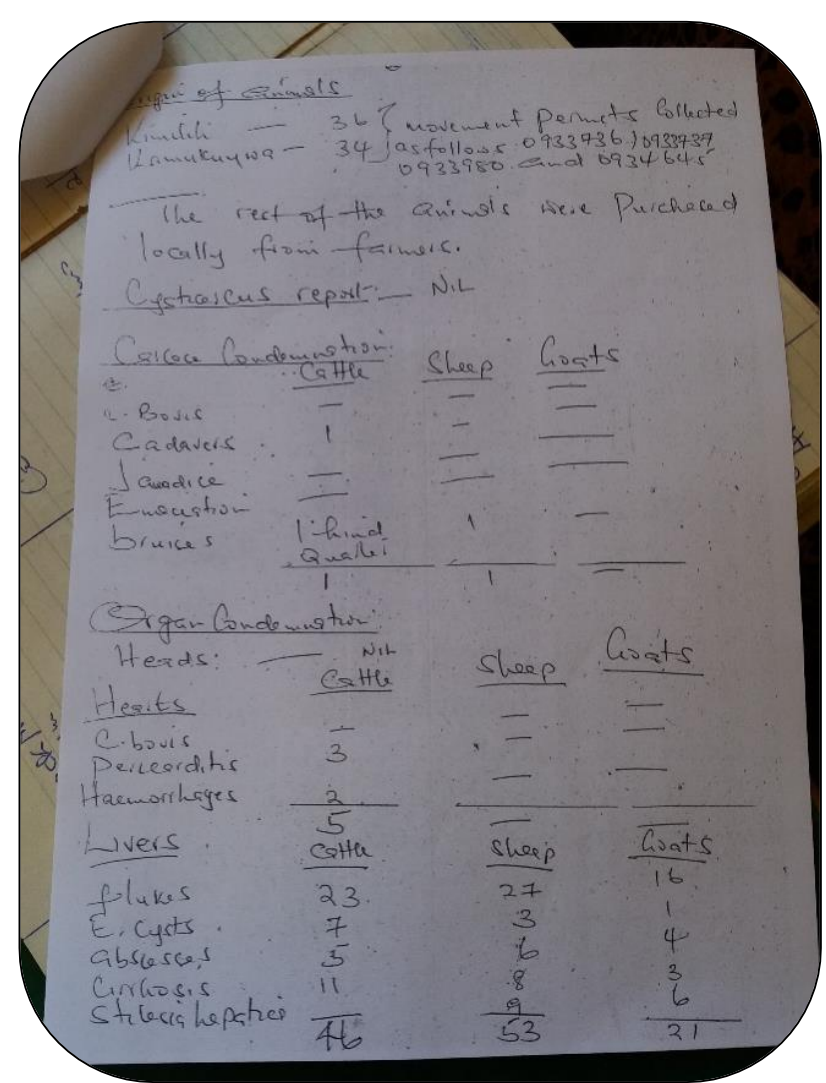 origin of animals
Kimilili — 36 } movement Permits Collected
Kamukuywa — 34 } as follows 0933736, 0933737
0933980 and 0934645
The rest of the animals were Purchased
locally from farmers.
Cysticercus report: — NIL
Carcase Condemnation:
Cattle Sheep Goats
C. Bovis — — —
Cadavers 1 - —
Jaundice — — —
Emaciation — — —
bruises 1-hind 1 —
Quarter
1 1 —
Organ Condemnation:
Heads: — NIL
Cattle Sheep Goats
Hearts
C. bovis — — —
Pericarditis 3 — —
Haemorrhages 2 — —
5 — —
Livers Cattle Sheep Goats
flukes 23 27 16
E. Cysts 7 3 1
abscesses 5 6 4
Cirrhosis 11 8 3
Stilesia hepatica 9 6
46 53 21